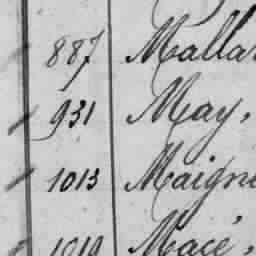 887 Mallar
931 May,
1013 Maigne
1019 Macé,